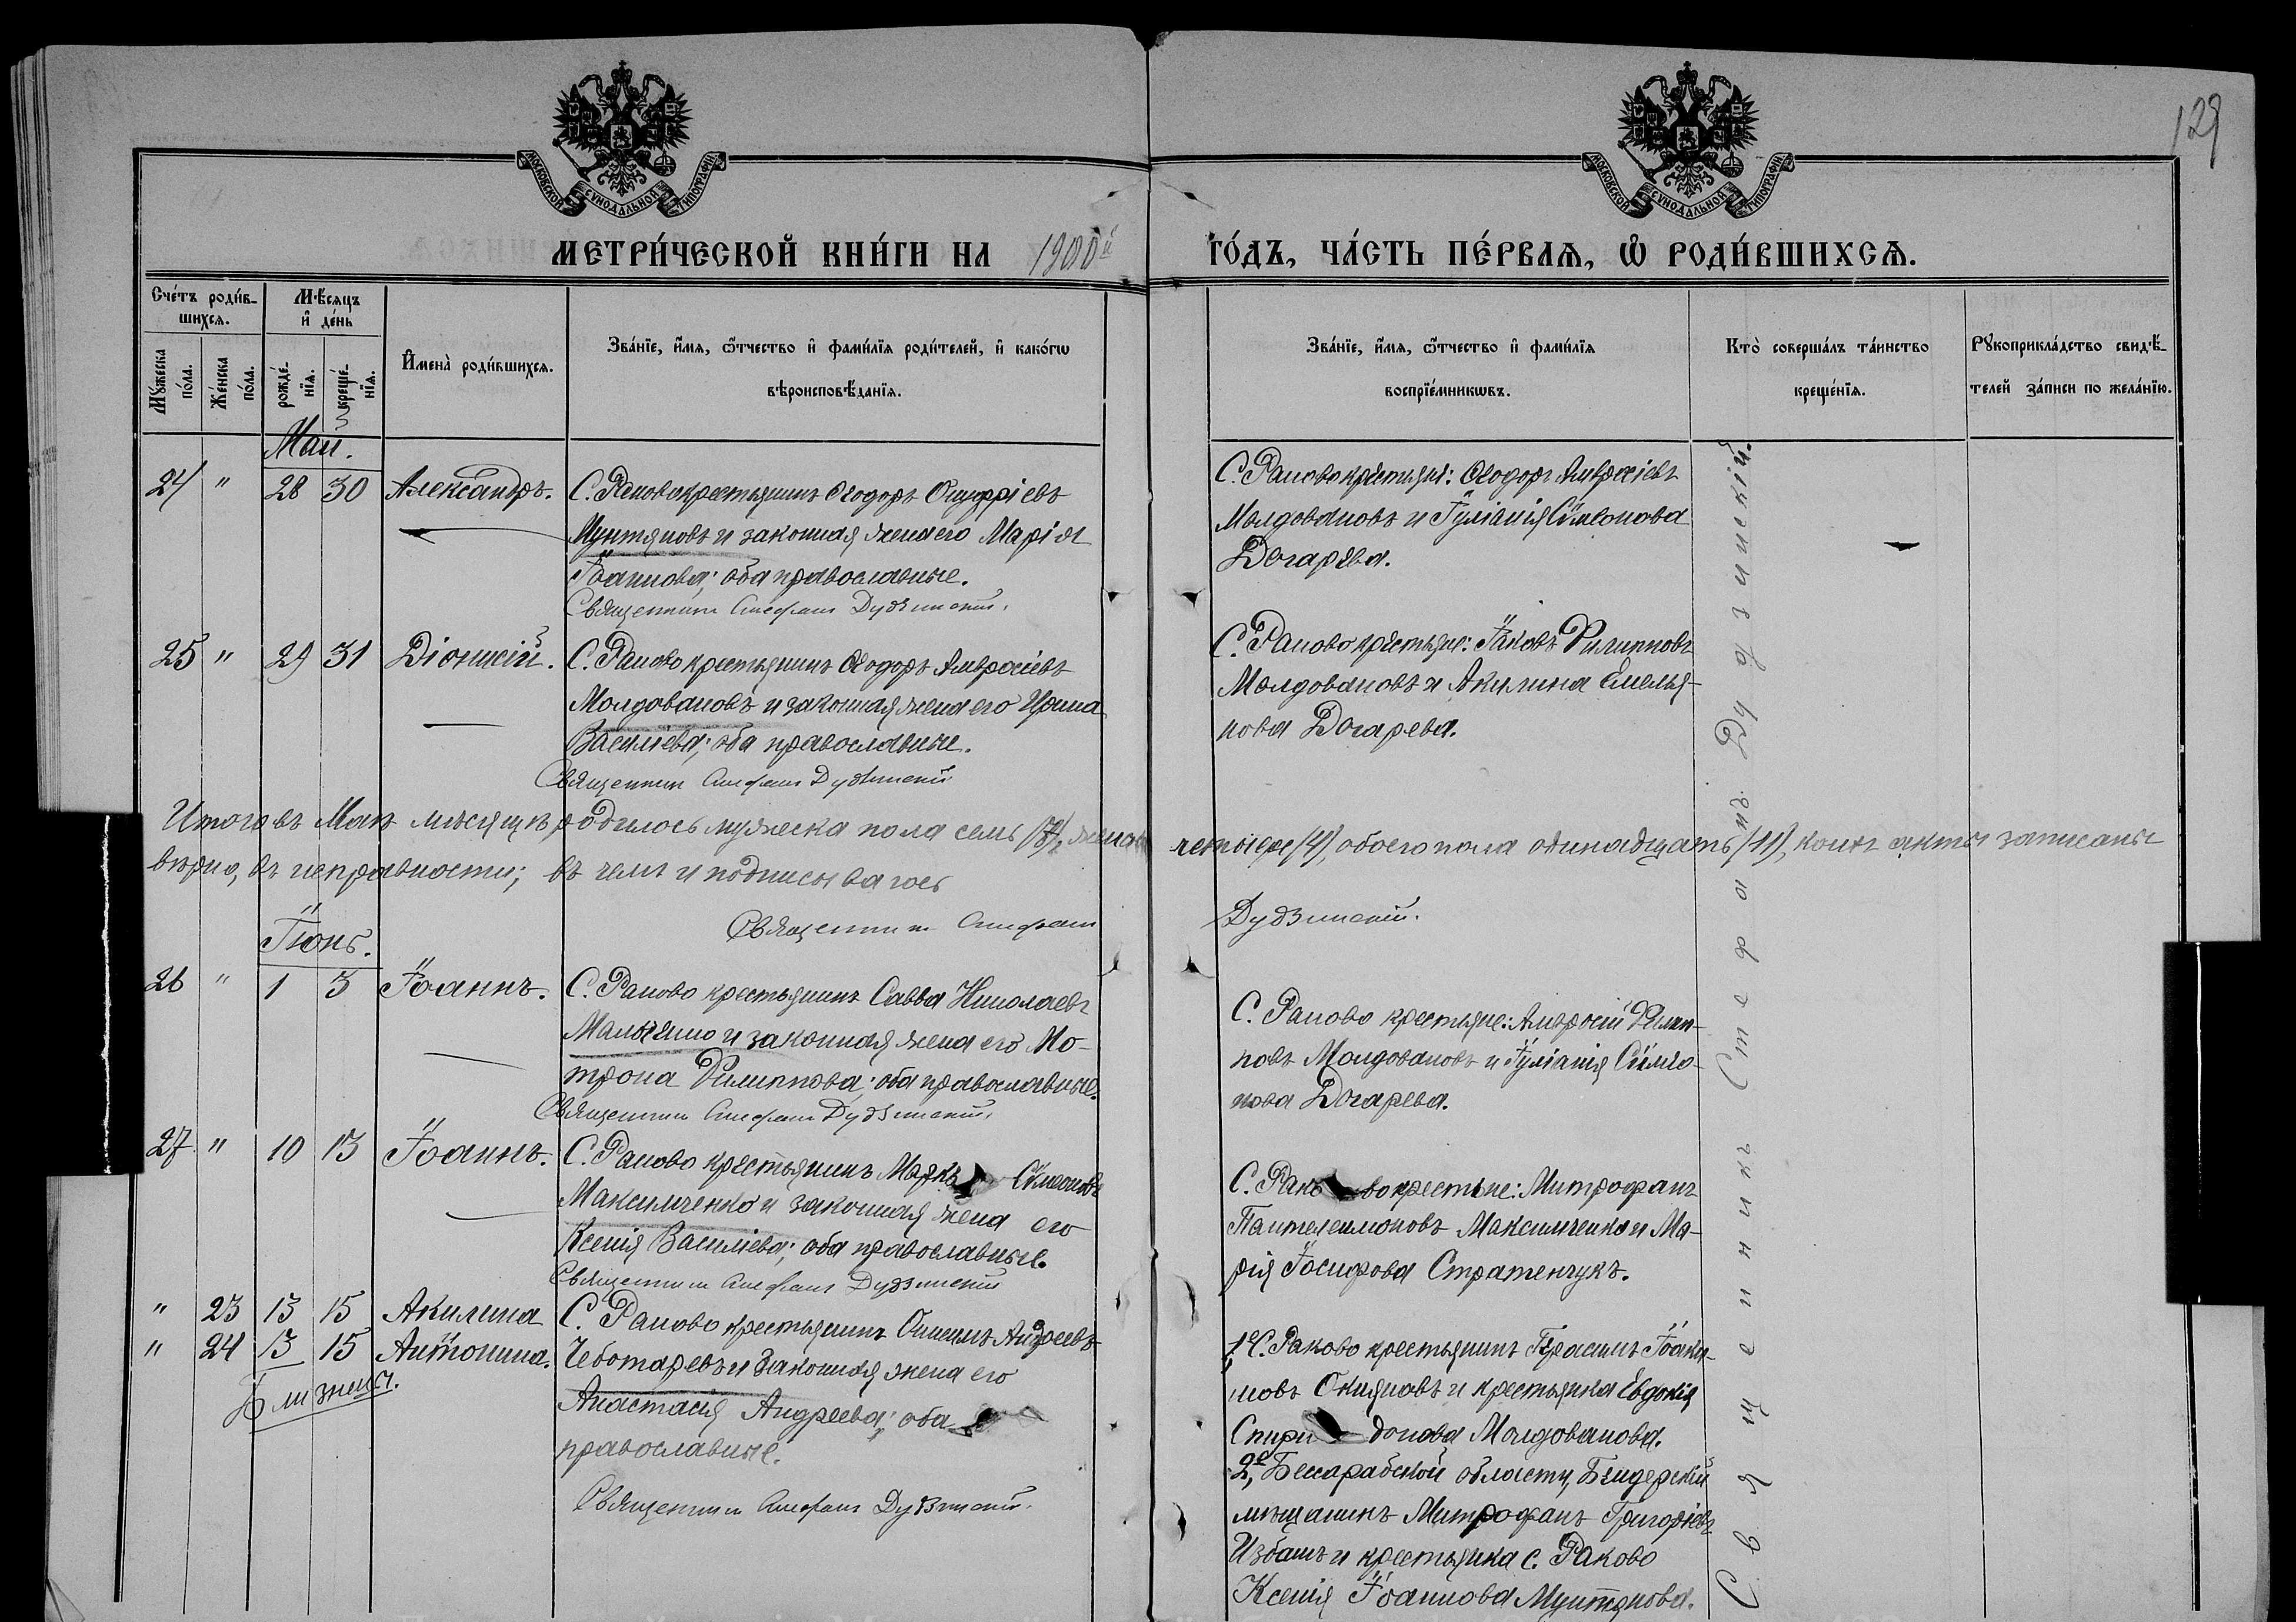 129
МОСКОВСКОЙ СѴНОДАЛЬНОЙ ТИПОГРАФІИ
МОСКОВСКОЙ СѴНОДАЛЬНОЙ ТИПОГРАФІИ
МЕТРИ́ЧЕСКОЙ КНИ́ГИ НА 1900й
ГО́ДЪ, ЧА́СТЬ ПЕ́РВАѦ, Ѡ РОДИ́ВШИХСѦ.
Сче́тъ роди́в-
шихсѧ.
Мꙋ́жеска
по́ла.
Же́нска
по́ла.
Мѣ́сѧцъ
и҆ де́нь
рожде́-
нїѧ.
креще́-
нїѧ.
И҆мена̀ роди́вшихсѧ.
Зва́нїе, и҆́мѧ, ѻ҆́тчество и҆ фами́лїѧ роди́телей, и҆ како́гѡ
вѣроисповѣ́данїѧ.
Зва́нїе, и҆́мѧ, ѻ҆́тчество и҆ фами́лїѧ
воспрїе́мникѡвъ.
Кто̀ соверша́лъ та́инство
креще́нїѧ.
Рꙋкоприкла́дство свидѣ́-
телей за́писи по жела́нїю.
Май.
24 " 28 30 Александръ.
С. Раково крестьянинъ Ѳеодоръ Онуфріевъ
Мунтяновъ и законная жена его Марія
Іоаннова; оба православные.
Священникъ Стефанъ Дудзинскій.
С. Раково крестьяне: Ѳеодоръ Амвросіевъ
Молдовановъ и Іуліанія Сѵмеонова
Догарева.
25 " 29 31 Діонисій.
С. Раково крестьянинъ Ѳеодоръ Амвросіевъ
Молдовановъ и законная жена его Ирина
Василіева; оба православные.
Священникъ Стефанъ Дудзинскій
С. Раково крестьяне: Іаковъ Филипповъ
Молдовановъ и Акилина Емелья-
нова Догарева.
Итого въ Маѣ мѣсяцѣ родилось мужеска пола семь (7), женска четыре (4), обоего пола одинадцать (11), коихъ акты записаны
вѣрно, въ исправности; въ чемъ и подписываюсь
Священникъ Стефанъ Дудзинскій.
Іюнь.
26 " 1 3 Іоаннъ.
С. Раково крестьянинъ Савва Николаевъ
и законная жена его Мо-
трона Филиппова; оба православные.
Священникъ Стефанъ Дудзинскій.
С. Раково крестьяне: Амвросій Филип-
повъ Молдовановъ и Іуліанія Сѵмео-
нова Догарева.
27 " 10 13 Іоаннъ.
С. Раково крестьянинъ Маркъ Сѵмеоновъ
Максимченко и законная жена его
Ксенія Василіева; оба православные.
Священникъ Стефанъ Дудзинскій
С. Раково крестьяне: Митрофанъ
Пантелеимоновъ Максимченко и Ма-
рія Іосифова Стратенчукъ.
" 23 13 15 Акилина
" 24 13 15 Антонина.
Близнецы.
С. Раково крестьянинъ Андреевъ
Чеботаревъ и законная жена его
Анастасія Андреева; оба
православные.
Священникъ Стефанъ Дудзинскій.
1е, С. Раково крестьянинъ Герасимъ Іоаки-
мовъ Окияновъ и крестьянка Евдокія
Спиридонова Молдованова.
2е, Бессарабской области, Бендерскій
мѣщанинъ Митрофанъ Григоріевъ
Избашъ и крестьянка с. Раково
Ксенія Іоаннова Мунтянова.
Священникъ Стефанъ Дудзинскій.